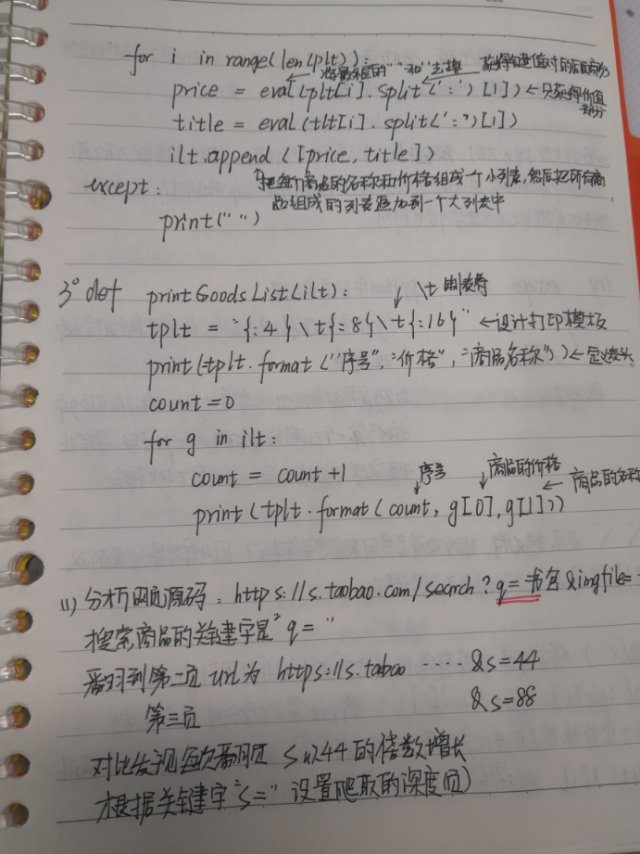 for i in range(len(plt)):
将最外层的" "和' '去掉 获得键值对的后面部分
price = eval(plt[i].split(':')[1]) ←只获得价值部分
title = eval(tlt[i].split(':')[1])
ilt.append([price, title])
把每个商品的名称和价格组成一个小列表,然后把所有商
品组成的列表追加到一个大列表中
except:
print("")
3° def printGoodsList(ilt): ↓ \t 制表符
tplt = "{:4}\t{:8}\t{:16}" ←设计打印模板
print(tplt.format("序号","价格","商品名称")) ←定义表头。
count=0
for g in ilt:
count = count+1
序号 商品的价格
print(tplt.format(count, g[0], g[1])) ← 商品的名称
11) 分析网页源码: https://s.taobao.com/search?q=书包&imgfile=
搜索商品的关键字是"q="
翻到第二页 url为 https://s.tabao ···· &s=44
第三页 &s=88
对比发现每次翻页 s以44的倍数增长
根据关键字"s=" 设置爬取的深度(页)